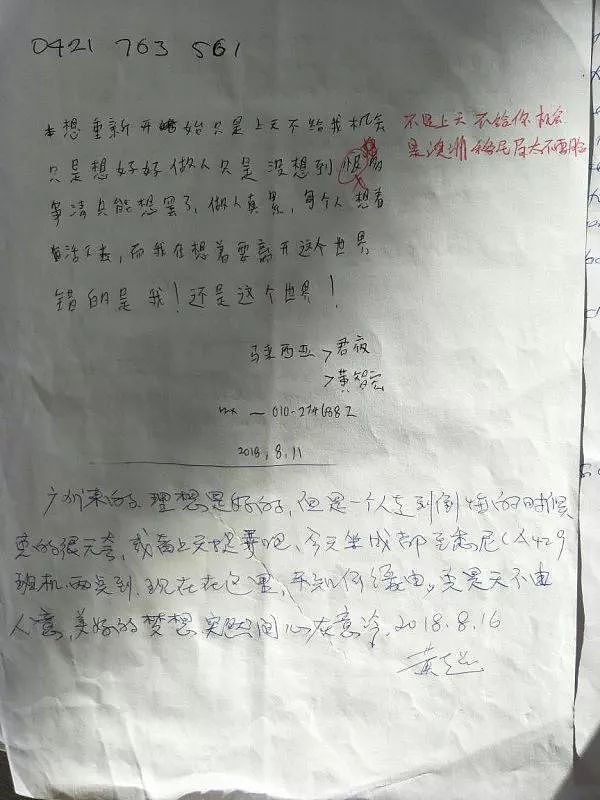 0421 763 561
想重新开始只是上天不给我机会
不是上天不给你机会
是澳洲移民局太不要脸
只是想好好做人只是没想到
事清只能想罢了，做人真累，每个人想着
活下去，而我在想着要离开这个世界，
错的是我！还是这个世界！
马来西亚 > 君
> 黄智宏
2018.8.11
广州来的。理想是好的，但是一个人走到倒霉的时候
真的很无夸，或者上天捉弄吧，今天坐成都至悉尼
班机两点到，现在在这里，不知何缘由。 天不由
人意，美好的梦想突然间心灰意冷。2018.8.16
黄